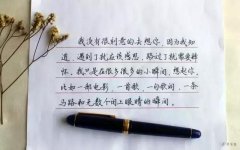 我没有很刻意的去想你，因为我知
道，遇到了就应该感恩，路过了就需要释
怀。我只是在很多很多的小瞬间，想起你，
比如一部电影，一首歌，一句歌词，一条
马路和无数个闭上眼睛的瞬间。